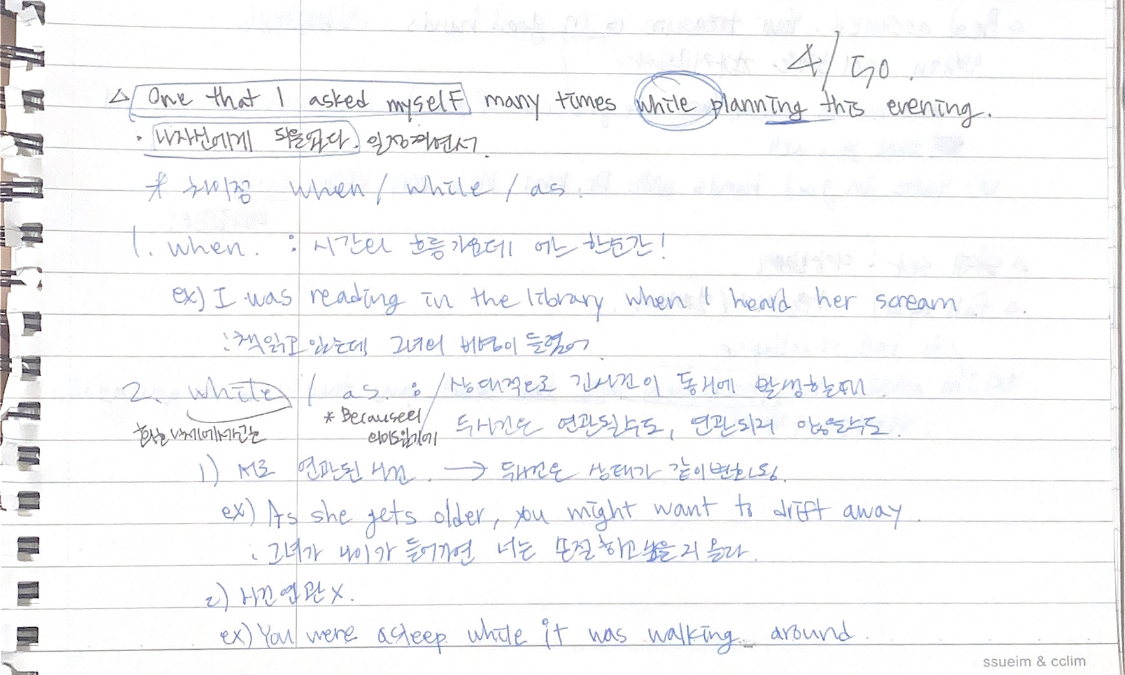 4/50.
△ One that I asked myself many times while planning this evening.
· 나자신에게 되물었다. 일정짜면서.
* 차이점 when / while / as.
1. when. : 시간의 흐름가운데 어느 한순간!
ex) I was reading in the library when I heard her scream.
: 책읽고 있는데 그녀의 비명이 들렸어.
2. while / as. : 상대적으로 긴사건이 동시에 발생할때.
* Because의 의미도있기에
두사건은 연관될수도, 연관되지 않을수도.
1) 서로 연관된 사건. → 두사건은 상태가 같이변화됨.
ex) As she gets older, you might want to drift away.
: 그녀가 나이가 들어가면 너는 손절하고 싶을지 몰라.
2) 사건연관X.
ex) You were asleep while it was walking around.
ssueim & cclim